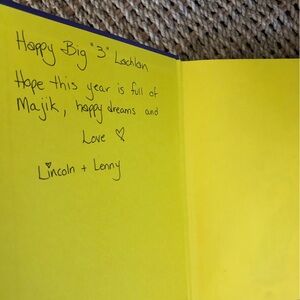 Happy Big "3" Lachlan
Hope this year is full of
Majik, happy dreams and
Love ♡
Lincoln + Lenny